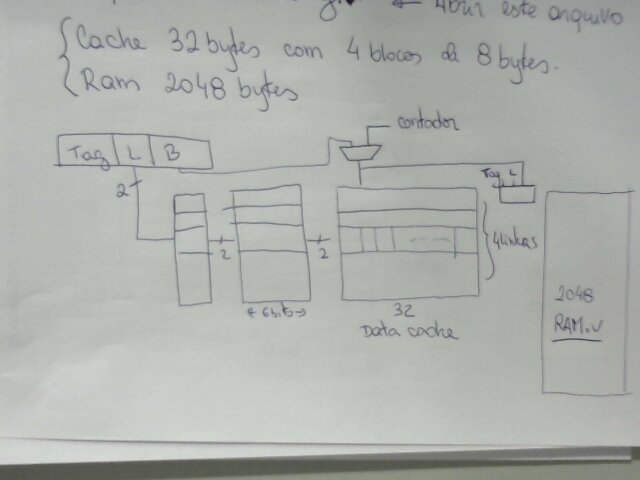 ← Abrir este arquivo
Cache 32 bytes com 4 blocos de 8 bytes.
Ram 2048 bytes
contador
Tag L B
Tag L
2
2
2
4 linhas
6 bits
32
Data cache
2048
RAM.v